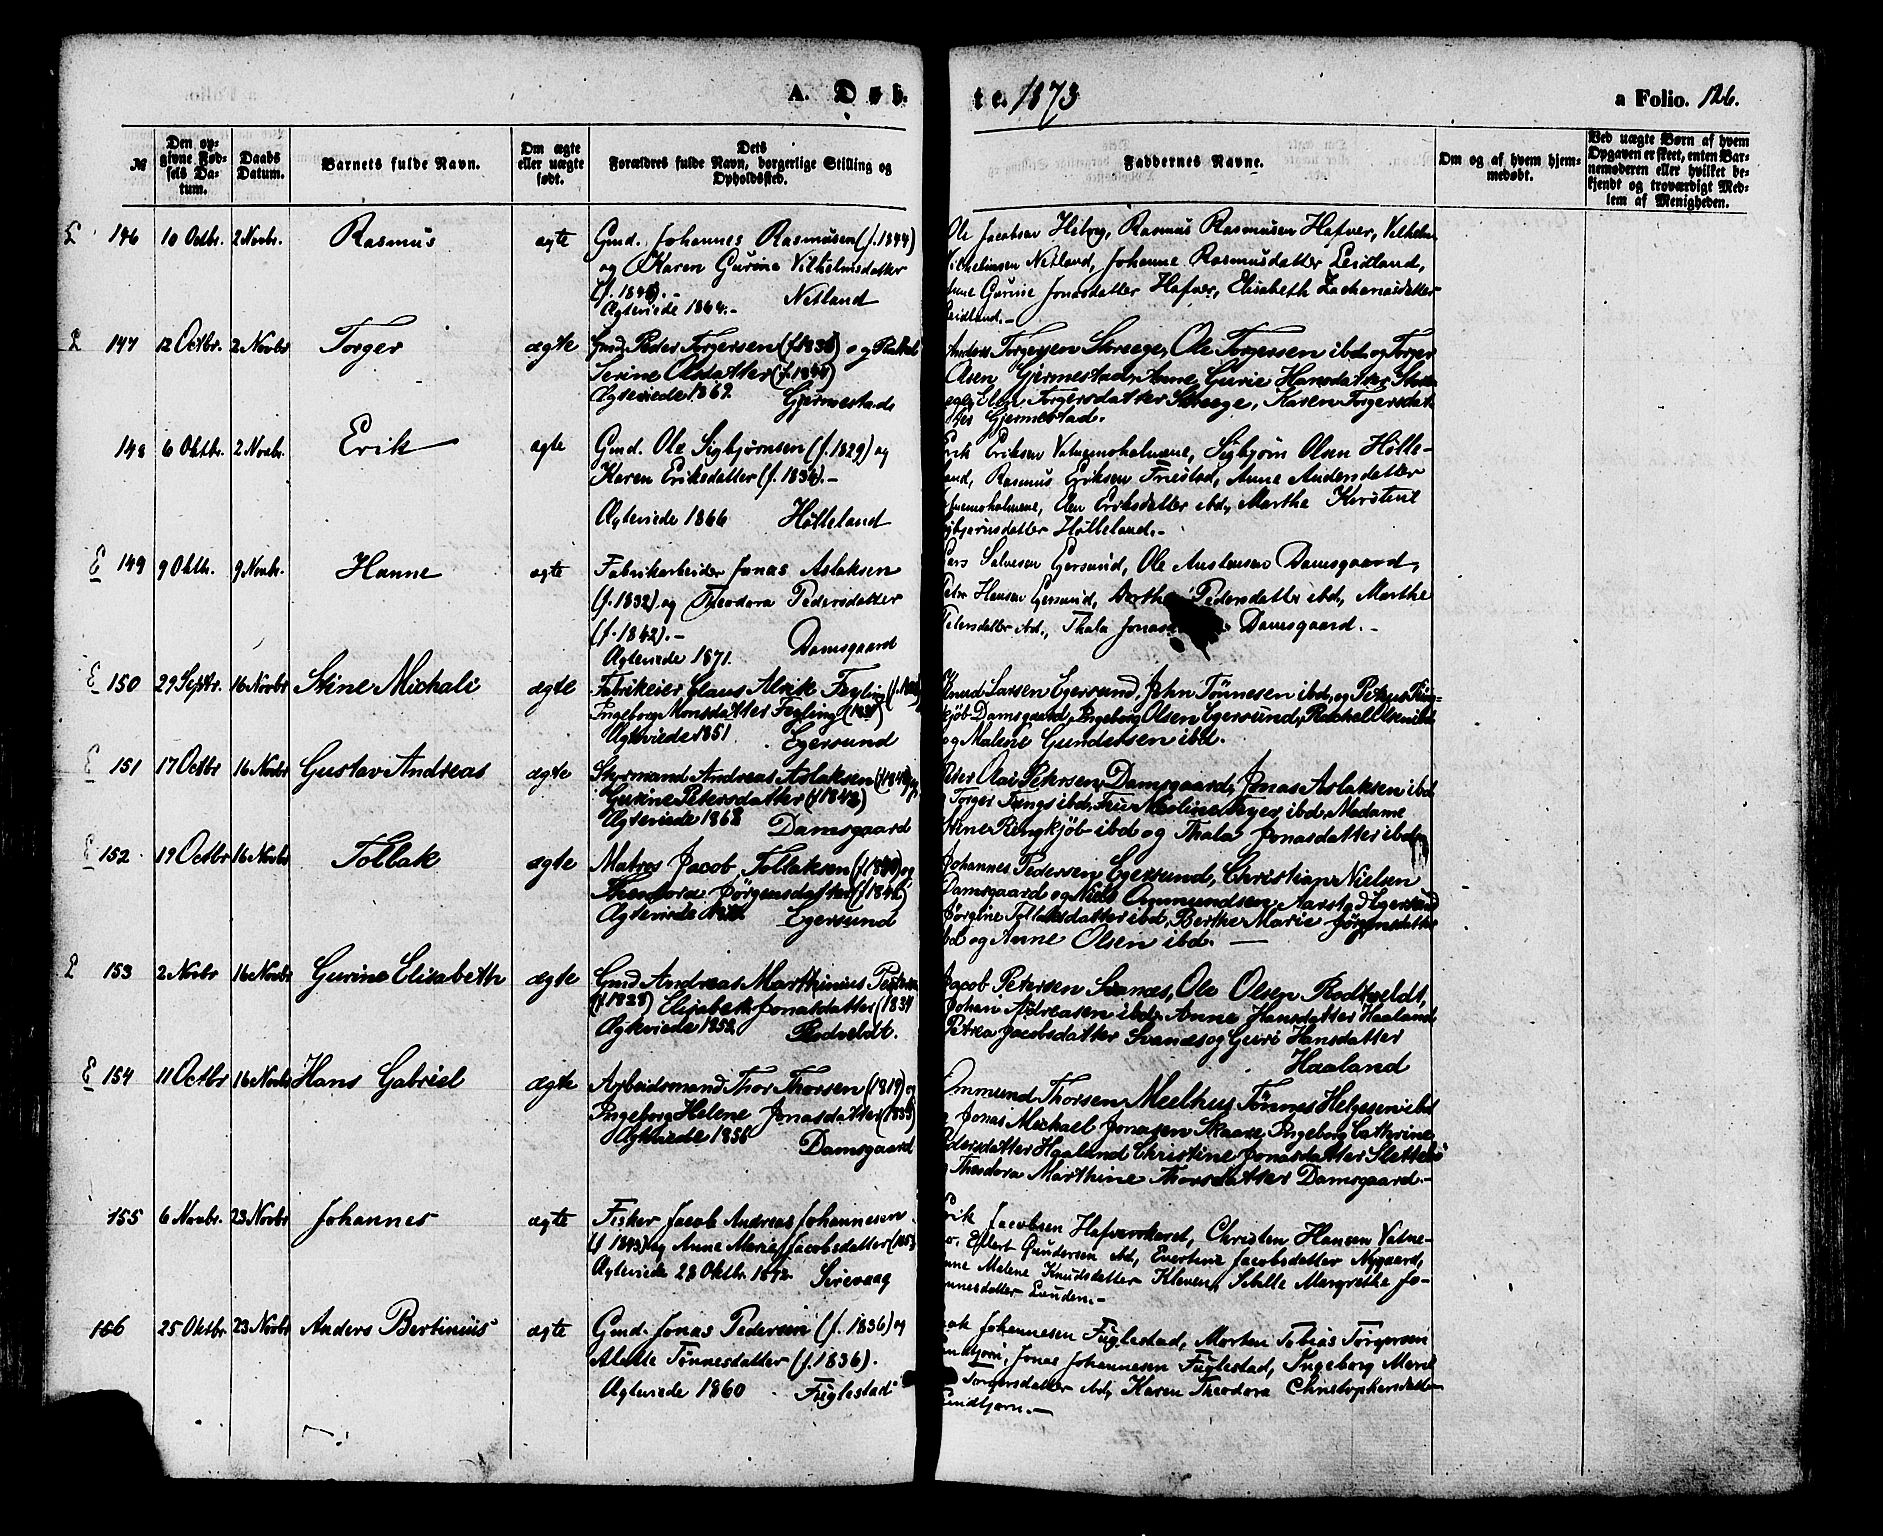 A. Døbte. 1873
a Folio. 126.
№
Den opgivne Fødsels Datum.
Daabs Datum.
Barnets fulde Navn.
Om ægte eller uægte født.
Dets Forældres fulde Navn, borgerlige Stilling og Opholdssted.
Faddernes Navne.
Om og af hvem hjemmedøbt.
Ved uægte Børn af hvem Opgaven er skeet, enten Barnemoderen eller hvilket bekjendt og troværdigt Medlem af Menigheden.
146 10 Octbr. 2 Novbr. Rasmus ægte
Gmd. Johannes Rasmusen (f. 1844)
og Karen Gurine Vilhelmsdatter
Ægteviede 1864.- Netland
Ole Jacobsen Rasmus Rasmusen Hafver, Vilhelm
Vilhelmsen Netland, Johanne Rasmusdatter Leidland,
Gurine Jonasdatter Hafver, Elisabeth Zachariasdatter
Leidland.-
147 12 Octbr. 2 Novbr Torger ægte
Gmd. Peder Torgersen og Rakel
Serine Olsdatter
Ægteviede 1869. Gjermestad
Anders Torgersen Skreege, Ole Torgersen ibd. og Torger
Olsen Gjermestad, Anne Gurie Hansdatter
Elen Torgersdatter Skreege, Karen Torgersdat-
ter Gjermestad.
148 6 Oktbr. 2 Novbr. Erik ægte
Gmd. Ole Sigbjørnsen (f. 1829) og
Karen Eriksdatter (f. 1836).-
Ægteviede 1866 Hølleland
Erik Eriksen Vatnemoholmene, Sigbjörn Olsen Hölle-
land, Rasmus Eriksen Friestad, Anne Audensdatter
Elen Eriksdatter ibd, Marthe Kirstine
Sigbjørnsdatter Hølleland.-
E 149 9 Oktb. 9 Novbr. Hanne ægte
Fabrikarbeider Jonas Aslaksen
(f. 1832) og Theodora Pedersdatter
(f. 1842).-
Ægteviede 1871. Damsgaard
Salvesen Egersund, Ole Damsgaard,
Petr Hansen Egersund, Berthe Pedersdatter ibd, Marthe
Petersdatter ibd., Thala Damsgaard.-
E 150 29 Septr. 16 Novbr Stine Michali ægte
Fabrikeier Claus Alrik Feyling
Ingeborg Monsdatter Feyling
Ægteviede 1851. Egersund
Knud Larsen Egersund, John Tönnesen ibd, og Petrus Ring-
kjöb Damsgaard, Ingeborg Olsen Egersund, Rachel Olsen ibd
og Malene Gundersen ibd.
E 151 17 Octbr 16 Novbr Gustav Andreas ægte
Styrmand Andreas Aslaksen
Gurine Petersdatter
Ægteviede 1868 Damsgaard
Peter Petersen, Damsgaard, Jonas Aslaksen ibd
Torger ibd, Madame
Ringkjöb ibd og Thala Jonasdatter ibd
E 152 19 Octbr 16 Novbr Tollak ægte
Matros Jacob Tollaksen og
Theodora Jörgensdatter
Ægteviede Egersund
Johannes Pedersen Egersund, Christian Nielsen
Damsgaard og Niels Ommundsen Aarstad Egersund
Jörgine Tollaksdatter ibd, Berthe Marie Jörgensdatter
ibd og Anne Olsen ibd. —
153 2 Novbr 16 Novbr Gurine Elisabeth ægte
Gmd Andreas Marthinius
(f 1828) Elisabeth Jonasdatter
Ægteviede 1852. Rodveldt.
Jacob Petersen Svanes, Ole Olsen Rodtveldt,
Johan Andreasen ibd, Anne Hansdatter Haaland
Petrea Jacobsdatter Svanes og Guri Hansdatter
Haaland
E 154 11 Octbr 16 Novbr Hans Gabriel ægte
Arbeidsmand Thor Thorsen (1819) og
Ingeborg Helene Jonasdatter
Ægteviede Damsgaard
Ommund Thorsen Meelhus, Tönnes Helgesen ibd
Jonas Michael Jonasen Skaare, Ingeborg Cathrine
Pedersdatter Haaland Christine Jonasdatter Slettebö
Theodora Marthine Thorsdatter Damsgaard.-
155 6 Novbr. 23 Novbr Johannes ægte
Fisker Jacob Andreas Johannesen
(f 1843) og Anne Marie Jacobsdatter
Ægteviede 28 Oktbr. Sirevaag
Erik Jacobsen Christen Hansen Vatne-
Eilert Gundersen ibd, Evertine Jacobsdatter Nygaard,
Malene Knudsdatter Kleven, Margrethe Jo-
hannesdatter Lunden.-
156 25 Oktbr. 23 Novbr Anders Bertinius ægte
Gmd. Jonas Pedersen (f. 1836) og
Alette Tönnesdatter (f. 1836).
Ægteviede 1860 Fuglestad
Johannesen Fuglestad, Morten Tobias Torgersen
Jonas Johannesen Fuglestad, Ingeborg
Torgersdatter ibd, Karen Theodora Christophersdatter